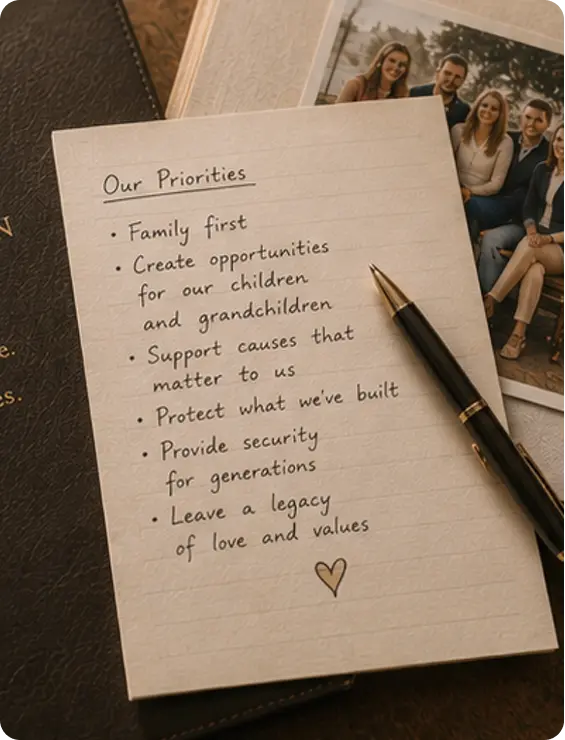 Our Priorities
• Family first
• Create opportunities
for our children
and grandchildren
• Support causes that
matter to us
• Protect what we've built
• Provide security
for generations
• Leave a legacy
of love and values